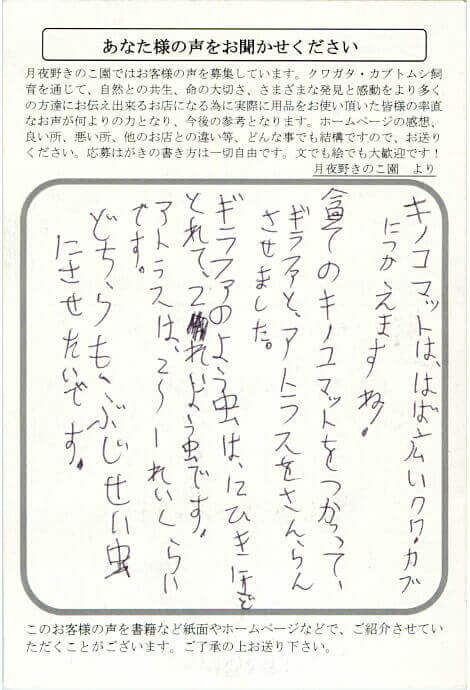 あなた様の声をお聞かせください
月夜野きのこ園ではお客様の声を募集しています。クワガタ・カブトムシ飼
育を通じて、自然との共生、命の大切さ、さまざまな発見と感動をより多く
の方達にお伝え出来るお店になる為に実際に用品をお使い頂いた皆様の率直
なお声が何よりの力となり、今後の参考となります。ホームページの感想、
良い所、悪い所、他のお店との違い等、どんな事でも結構ですので、お送り
ください。応募はがきの書き方は一切自由です。文でも絵でも大歓迎です！
月夜野きのこ園　より
キノコマットは、はば広いクワ・カブ
につかえますね！
全てのキノコマットをつかって、
ギラファと、アトラスをさんらん
させました。
ギラファのよう虫は、にひきほど
とれて、2れいよう虫です。
アトラスは、2〜1れいくらい
です。
どちらもぶじせい虫
にさせたいです。
このお客様の声を書籍など紙面やホームページなどで、ご紹介させてい
ただくことがございます。ご了承の上お送り下さい。